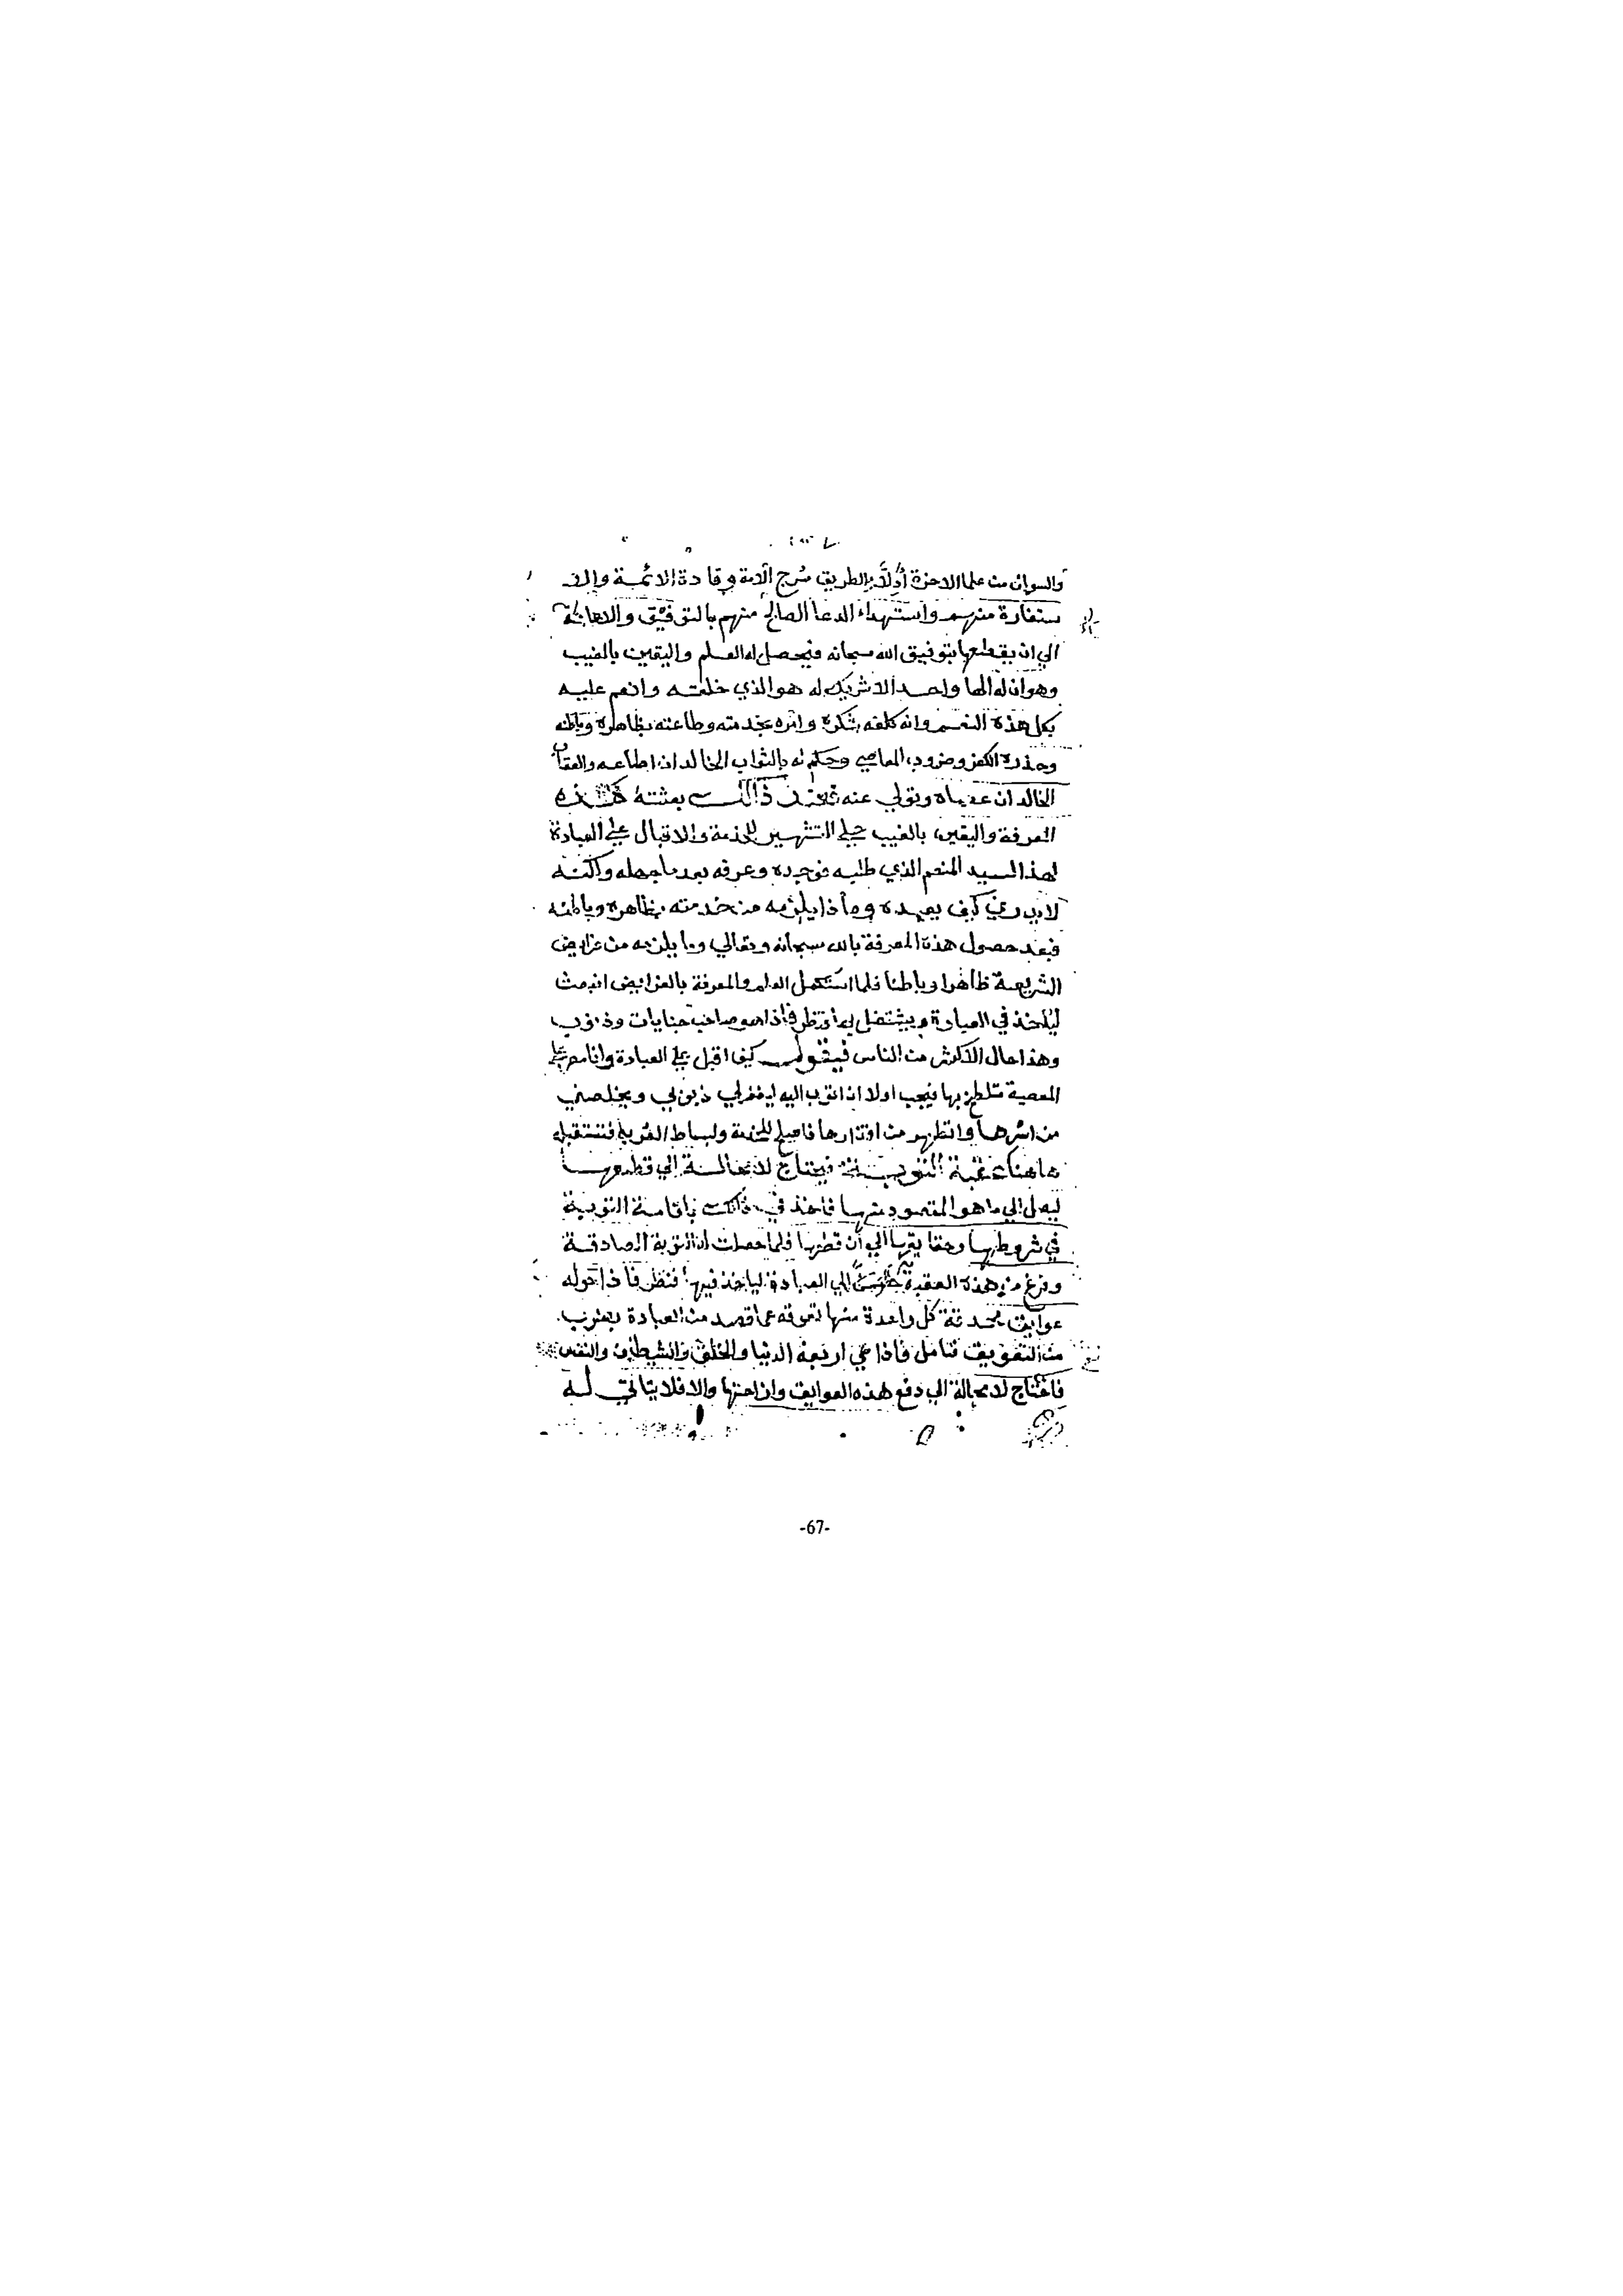 والسوال من علما الاخرة أدلة الطريق سُرج الامة وقادة الائمة والا
ستفادة منهم واستهداء الدعا الصالح منهم بالتوفيق والاعانة
الي ان يقطعها بتوفيق الله سبحانه فيحصل له العلم واليقين بالغيب
وهو ان له الها واحدا لا شريك له هو الذي خلقه وانعم عليه
بكل هذه النعم وانه كلفه شكره وامره بخدمته وطاعته بظاهره وباطنه
وحذره الكفر وضروب المعاصي وحكم له بالثواب الخالد ان اطاعه والعقاب
الخالد ان عصاه وتولي عنه فعند ذالك بعثته هذه
المعرفة واليقين بالغيب علي التشمير للخدمة والاقبال علي العبادة
لهذا السيد المنعم الذي طلبه فوجده وعرفه بعد ما جهله ولكنه
لا يدري كيف يعبده وماذا يلزمه من خدمته بظاهره وباطنه
فبعد حصول هذه المعرفة بالله سبحانه وتعالي وما يلزمه من فرايض
الشريعة ظاهرا وباطنا فلما استكمل العلم والمعرفة بالفرايض انبعث
لياخذ في العبادة ويشتغل بها فنظر فاذا هو صاحب جنايات وذنوب
وهذا حال الاكثر من الناس فيقول كيف اقبل علي العبادة وانا مصر علي
المعصية متلطخ بها فيجب اولا ان اتوب اليه ليغفر لي ذنوبي ويخلصني
من اسرها واتطهر من اقذارها فاصلح للخدمة ولبساط القربة فتستقبله
هاهنا عقبة التوبة فيحتاج لا محالة الي قطعها
ليصل الي ما هو المقصود منها فاخذ في ذالك باقامة التوبة
في شروطها وحقايقها الي أن قطعها فلما حصلت له التوبة الصادقة
وفرغ من هذه العقبة الي العبادة لياخذ فيها فنظر فاذا حوله
عوايق محدقة كل واحدة منها تعوقه عما قصد من العبادة بضرب
من التعويق فتامل فاذا هي اربعة الدنيا والخلق والشيطان والنفس
فاحتاج لا محالة الي دفع هذه العوايق وازاحتها والا فلا يتاتي له
-67-